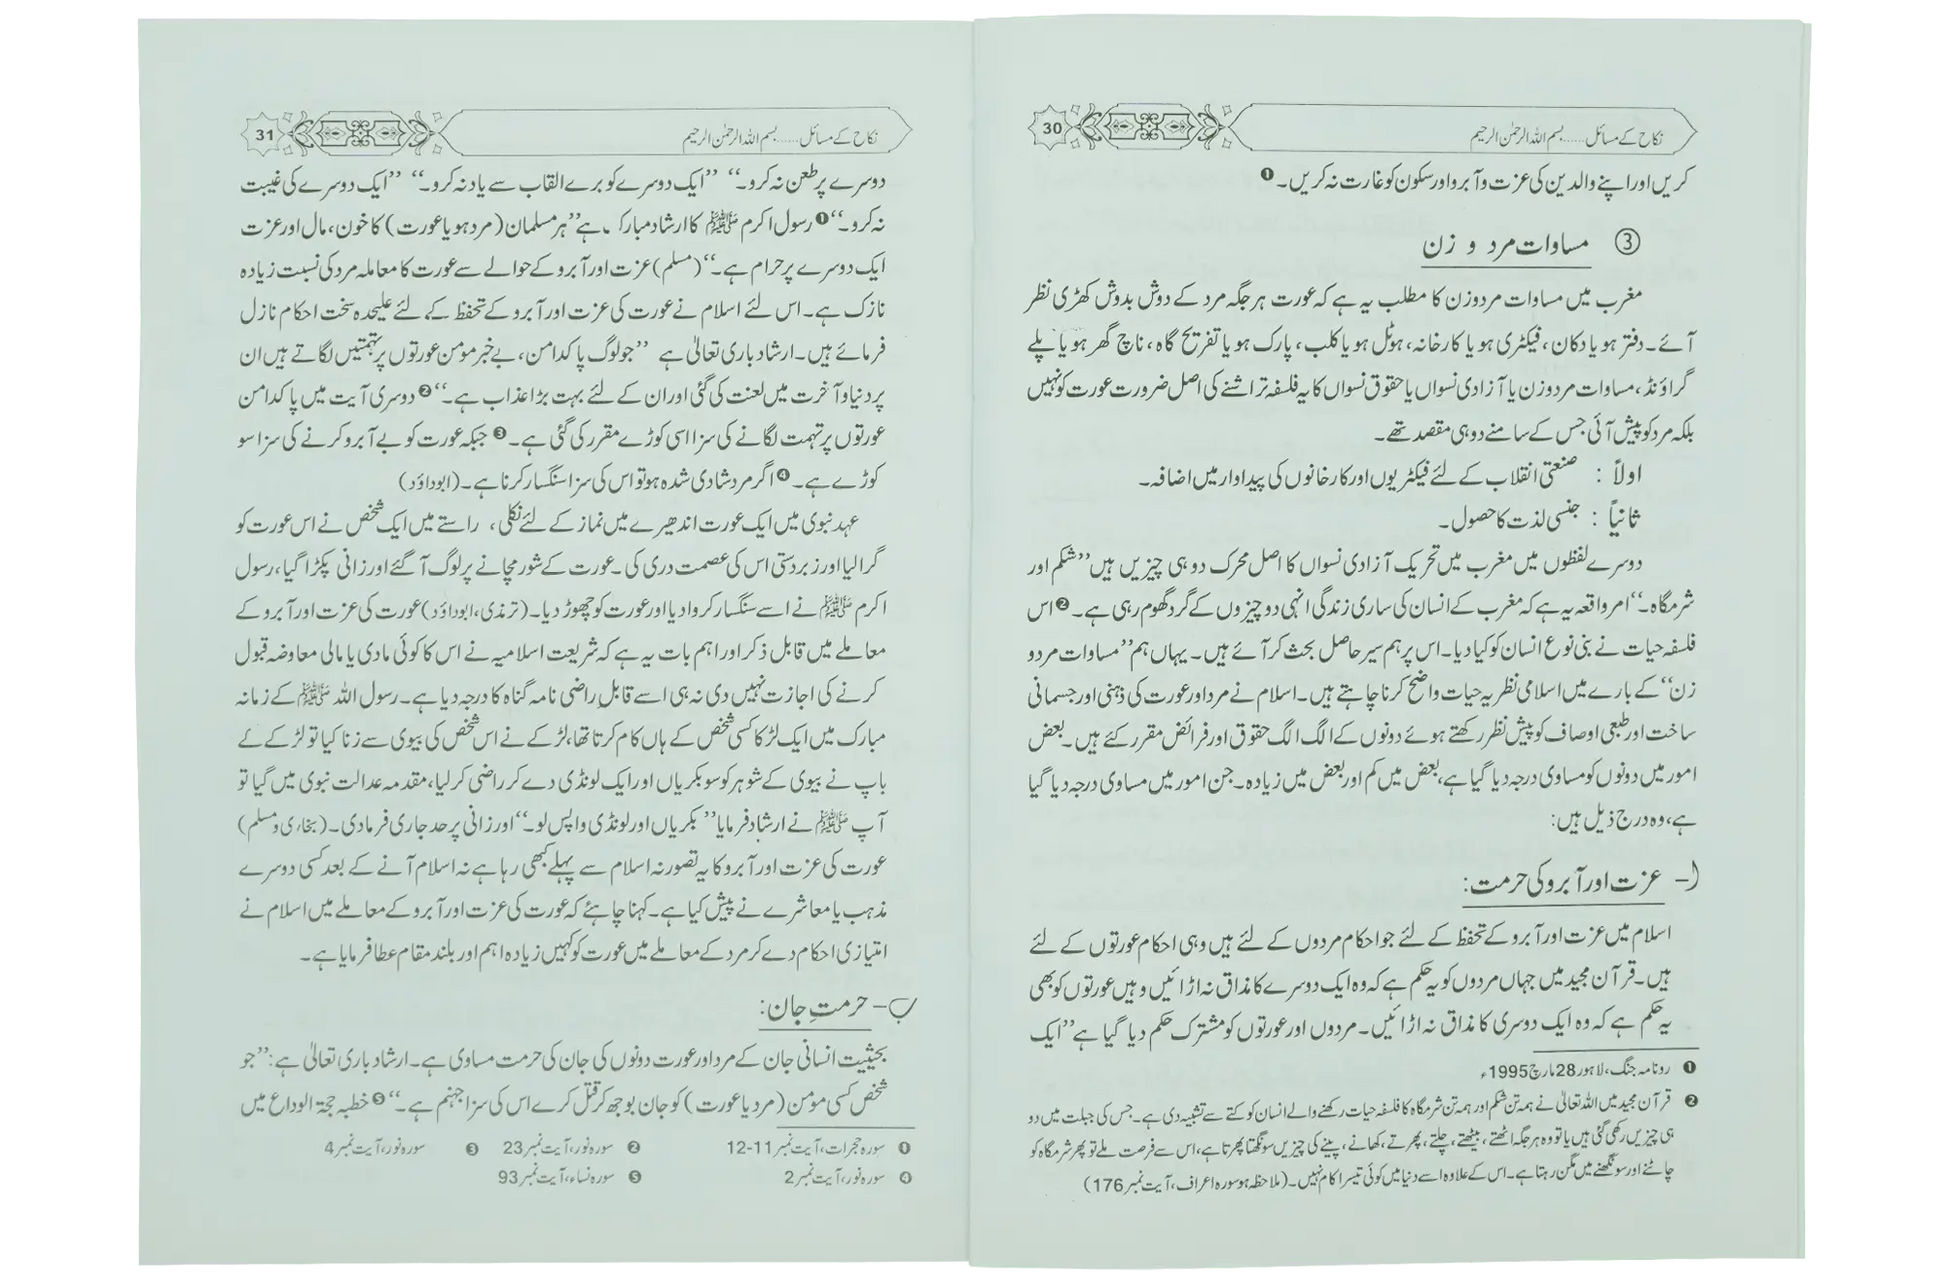 نکاح کے مسائل.....بسم اللہ الرحمٰن الرحیم
30
کریں اور اپنے والدین کی عزت و آبرو اور سکون کو غارت نہ کریں۔❶
③ مساوات مرد و زن
مغرب میں مساوات مرد و زن کا مطلب یہ ہے کہ عورت ہر جگہ مرد کے دوش بدوش کھڑی نظر
آئے۔ دفتر ہو یا دکان، فیکٹری ہو یا کارخانہ، ہوٹل ہو یا کلب، پارک ہو یا تفریح گاہ، ناچ گھر ہو یا پلے
گراؤنڈ، مساوات مرد و زن یا آزادی نسواں یا حقوق نسواں کا یہ فلسفہ تراشنے کی اصل ضرورت عورت کو نہیں
بلکہ مرد کو پیش آئی جس کے سامنے دو ہی مقصد تھے۔
اولاً : صنعتی انقلاب کے لئے فیکٹریوں اور کارخانوں کی پیداوار میں اضافہ۔
ثانیاً : جنسی لذت کا حصول۔
دوسرے لفظوں میں مغرب میں تحریک آزادی نسواں کا اصل محرک دو ہی چیزیں ہیں ’’شکم اور
شرمگاہ۔‘‘ امر واقعہ یہ ہے کہ مغرب کے انسان کی ساری زندگی انہی دو چیزوں کے گرد گھوم رہی ہے۔❷ اس
فلسفہ حیات نے بنی نوع انسان کو کیا دیا۔ اس پر ہم سیر حاصل بحث کر آئے ہیں۔ یہاں ہم ’’مساوات مرد و
زن‘‘ کے بارے میں اسلامی نظریہ حیات واضح کرنا چاہتے ہیں۔ اسلام نے مرد اور عورت کی ذہنی اور جسمانی
ساخت اور طبعی اوصاف کو پیش نظر رکھتے ہوئے دونوں کے الگ الگ حقوق اور فرائض مقرر کئے ہیں۔ بعض
امور میں دونوں کو مساوی درجہ دیا گیا ہے، بعض میں کم اور بعض میں زیادہ۔ جن امور میں مساوی درجہ دیا گیا
ہے، وہ درج ذیل ہیں:
ا- عزت اور آبرو کی حرمت:
اسلام میں عزت اور آبرو کے تحفظ کے لئے جو احکام مردوں کے لئے ہیں وہی احکام عورتوں کے لئے
ہیں۔ قرآن مجید میں جہاں مردوں کو یہ حکم ہے کہ وہ ایک دوسرے کا مذاق نہ اڑائیں وہیں عورتوں کو بھی
یہ حکم ہے کہ وہ ایک دوسری کا مذاق نہ اڑائیں۔ مردوں اور عورتوں کو مشترک حکم دیا گیا ہے ’’ایک
❶ روزنامہ جنگ، لاہور 28 مارچ 1995ء
❷ قرآن مجید میں اللہ تعالیٰ نے ہمہ تن شکم اور ہمہ تن شرمگاہ کا فلسفہ حیات رکھنے والے انسان کو کتے سے تشبیہ دی ہے۔ جس کی جبلت میں دو
ہی چیزیں رکھی گئی ہیں یا تو وہ ہر جگہ اٹھتے، بیٹھتے، چلتے، پھرتے، کھانے، پینے کی چیزیں سونگھتا پھرتا ہے، اس سے فرصت ملے تو پھر شرمگاہ کو
چاٹنے اور سونگھنے میں مگن رہتا ہے۔ اس کے علاوہ اسے دنیا میں کوئی تیسرا کام نہیں۔ (ملاحظہ ہو سورہ اعراف، آیت نمبر 176)
نکاح کے مسائل.....بسم اللہ الرحمٰن الرحیم
31
دوسرے پر طعن نہ کرو۔‘‘ ’’ایک دوسرے کو برے القاب سے یاد نہ کرو۔‘‘ ’’ایک دوسرے کی غیبت
نہ کرو۔‘‘❶ رسول اکرم ﷺ کا ارشاد مبارک ہے ’’ہر مسلمان (مرد ہو یا عورت) کا خون، مال اور عزت
ایک دوسرے پر حرام ہے۔‘‘ (مسلم) عزت اور آبرو کے حوالے سے عورت کا معاملہ مرد کی نسبت زیادہ
نازک ہے۔ اس لئے اسلام نے عورت کی عزت اور آبرو کے تحفظ کے لئے علیحدہ سخت احکام نازل
فرمائے ہیں۔ ارشاد باری تعالیٰ ہے ’’جو لوگ پاکدامن، بے خبر مومن عورتوں پر تہمتیں لگاتے ہیں ان
پر دنیا و آخرت میں لعنت کی گئی اور ان کے لئے بہت بڑا عذاب ہے۔‘‘❷ دوسری آیت میں پاکدامن
عورتوں پر تہمت لگانے کی سزا اسی کوڑے مقرر کی گئی ہے۔❸ جبکہ عورت کو بے آبرو کرنے کی سزا سو
کوڑے ہے۔❹ اگر مرد شادی شدہ ہو تو اس کی سزا سنگسار کرنا ہے۔ (ابوداؤد)
عہد نبوی میں ایک عورت اندھیرے میں نماز کے لئے نکلی، راستے میں ایک شخص نے اس عورت کو
گرا لیا اور زبردستی اس کی عصمت دری کی۔ عورت کے شور مچانے پر لوگ آ گئے اور زانی پکڑا گیا، رسول
اکرم ﷺ نے اسے سنگسار کروا دیا اور عورت کو چھوڑ دیا۔ (ترمذی، ابوداؤد) عورت کی عزت اور آبرو کے
معاملے میں قابل ذکر اور اہم بات یہ ہے کہ شریعت اسلامیہ نے اس کا کوئی مادی یا مالی معاوضہ قبول
کرنے کی اجازت نہیں دی نہ ہی اسے قابل راضی نامہ گناہ کا درجہ دیا ہے۔ رسول اللہ ﷺ کے زمانہ
مبارک میں ایک لڑکا کسی شخص کے ہاں کام کرتا تھا، لڑکے نے اس شخص کی بیوی سے زنا کیا تو لڑکے کے
باپ نے بیوی کے شوہر کو سو بکریاں اور ایک لونڈی دے کر راضی کر لیا، مقدمہ عدالت نبوی میں گیا تو
آپ ﷺ نے ارشاد فرمایا ’’بکریاں اور لونڈی واپس لو۔‘‘ اور زانی پر حد جاری فرما دی۔ (بخاری و مسلم)
عورت کی عزت اور آبرو کا یہ تصور نہ اسلام سے پہلے کبھی رہا ہے نہ اسلام آنے کے بعد کسی دوسرے
مذہب یا معاشرے نے پیش کیا ہے۔ کہنا چاہئے کہ عورت کی عزت اور آبرو کے معاملے میں اسلام نے
امتیازی احکام دے کر مرد کے معاملے میں عورت کو کہیں زیادہ اہم اور بلند مقام عطا فرمایا ہے۔
ب- حرمتِ جان:
بحیثیت انسانی جان کے مرد اور عورت دونوں کی جان کی حرمت مساوی ہے۔ ارشاد باری تعالیٰ ہے: ’’جو
شخص کسی مومن (مرد یا عورت) کو جان بوجھ کر قتل کرے اس کی سزا جہنم ہے۔‘‘❺ خطبہ حجۃ الوداع میں
❶ سورہ حجرات، آیت نمبر 11-12 ❷ سورہ نور، آیت نمبر 23 ❸ سورہ نور، آیت نمبر 4
❹ سورہ نور، آیت نمبر 2 ❺ سورہ نساء، آیت نمبر 93